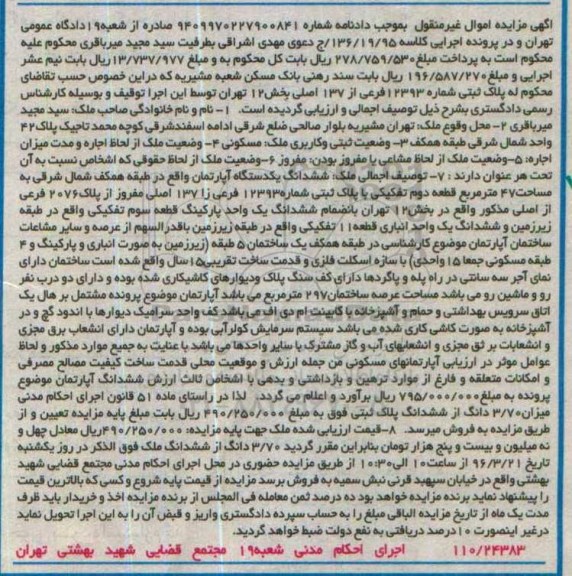 آگهی مزایده اموال غیرمنقول بموجب دادنامه شماره ۹۴۰۹۹۷۰۲۲۷۹۰۰۸۴۱ صادره از شعبه۱۹دادگاه عمومی
تهران و در پرونده اجرایی کلاسه ۱۳۶/۱۹/۹۵/ج دعوی مهدی اشراقی بطرفیت سید مجید میرباقری محکوم علیه
محکوم است به پرداخت مبلغ۲۷۸/۷۵۹/۵۳۰ ریال بابت کل محکوم به و مبلغ ۱۳/۷۳۷/۹۷۷ریال بابت نیم عشر
اجرایی و مبلغ۱۹۶/۵۸۷/۲۷۰ ریال بابت سند رهنی بانک مسکن شعبه مشیریه که دراین خصوص حسب تقاضای
محکوم له پلاک ثبتی شماره ۱۲۳۹۳فرعی از ۱۳۷ اصلی بخش۱۲ تهران توسط این اجرا توقیف و بوسیله کارشناس
رسمی دادگستری بشرح ذیل توصیف اجمالی و ارزیابی گردیده است. ۱- نام و نام خانوادگی صاحب ملک: سید مجید
میرباقری ۲- محل وقوع ملک: تهران مشیریه بلوار صالحی ضلع شرقی ادامه اسفندشرقی کوچه محمد تاجیک پلاک۴۲
واحد شمال شرقی طبقه همکف ۳- وضعیت ثبتی وکاربری ملک: مسکونی ۴- وضعیت ملک از لحاظ اجاره و مدت میزان
اجاره: ۵-وضعیت ملک از لحاظ مشاعی یا مفروز بودن: مفروز ۶-وضعیت ملک از لحاظ حقوقی که اشخاص نسبت به آن
تحت هر عنوان دارند : ۷- توصیف اجمالی ملک: ششدانگ یکدستگاه آپارتمان واقع در طبقه همکف شمال شرقی به
مساحت۴۷ مترمربع قطعه دوم تفکیکی با پلاک ثبتی شماره۱۲۳۹۳ فرعی از ۱۳۷ اصلی مفروز از پلاک۲۰۷۶ فرعی
از اصلی مذکور واقع در بخش۱۲ تهران بانضمام ششدانگ یک واحد پارکینگ قطعه سوم تفکیکی واقع در طبقه
زیرزمین و ششدانگ یک واحد انباری قطعه۱۱ تفکیکی واقع در طبقه زیرزمین باقدرالسهم از عرصه و سایر مشاعات
ساختمان آپارتمان موضوع کارشناسی در طبقه همکف یک ساختمان ۵ طبقه (زیرزمین به صورت انباری و پارکینگ و ۴
طبقه مسکونی جمعا ۱۵ واحدی) با سازه اسکلت فلزی و قدمت ساخت تقریبی۱۵سال واقع شده است ساختمان دارای
نمای آجر سه سانتی در راه پله و پاگردها دارای کف سنگ پلاک ودیوارهای کاشیکاری شده بوده و دارای دو درب نفر
رو و ماشین رو می باشد مساحت عرصه ساختمان۲۹۷ مترمربع می باشد آپارتمان موضوع پرونده مشتمل بر هال یک
اتاق سرویس بهداشتی و حمام و آشپزخانه با کابینت ام دی اف می باشد کف واحد سرامیک دیوارها با اندود گچ و در
آشپزخانه به صورت کاشی کاری شده می باشد سیستم سرمایش کولرآبی بوده و آپارتمان دارای انشعاب برق مجزی
و انشعابات بر ثق مجزی و انشعابهای آب و گاز مشترک با سایر واحدها می باشد با عنایت به جمیع موارد مذکور و لحاظ
عوامل موثر در ارزیابی آپارتمانهای مسکونی من جمله ارزش و موقعیت محلی قدمت ساخت کیفیت مصالح مصرفی
و امکانات متعلقه و فارغ از موارد ترهین و بازداشتی و بدهی با اشخاص ثالث ارزش ششدانگ آپارتمان موضوع
پرونده به مبلغ۷۹۵/۰۰۰/۰۰۰ ریال برآورد و اعلام می گردد. لذا در راستای ماده ۵۱ قانون اجرای احکام مدنی
میزان۳/۷۰ دانگ از ششدانگ پلاک ثبتی فوق به مبلغ ۴۹۰/۲۵۰/۰۰۰ ریال بابت مبلغ پایه مزایده تعیین و از
طریق مزایده به فروش میرسد. ۸-قیمت ارزیابی شده ملک جهت پایه مزایده: ۴۹۰/۲۵۰/۰۰۰ریال معادل چهل و
نه میلیون و بیست و پنج هزار تومان بنابراین مقرر گردید ۳/۷۰ دانگ از ششدانگ ملک فوق الذکر در روز یکشنبه
تاریخ ۹۶/۳/۲۱ از ساعت۱۰ الی۱۰:۳۰ از طریق مزایده حضوری در محل اجرای احکام مدنی مجتمع قضایی شهید
بهشتی واقع در خیابان سپهبد قرنی نبش سمیه به فروش برسد مزایده از قیمت پایه شروع و کسی که بالاترین قیمت
را پیشنهاد نماید برنده مزایده خواهد بود ده درصد ثمن معامله فی المجلس از برنده مزایده اخذ و خریدار باید ظرف
مدت یک ماه از تاریخ مزایده الباقی مبلغ را به حساب سپرده دادگستری واریز و قبض آن را به این اجرا تحویل نماید
درغیر اینصورت ۱۰درصد دریافتی به نفع دولت ضبط خواهد گردید.
۱۱۰/۲۴۳۸۳ اجرای احکام مدنی شعبه۱۹ مجتمع قضایی شهید بهشتی تهران